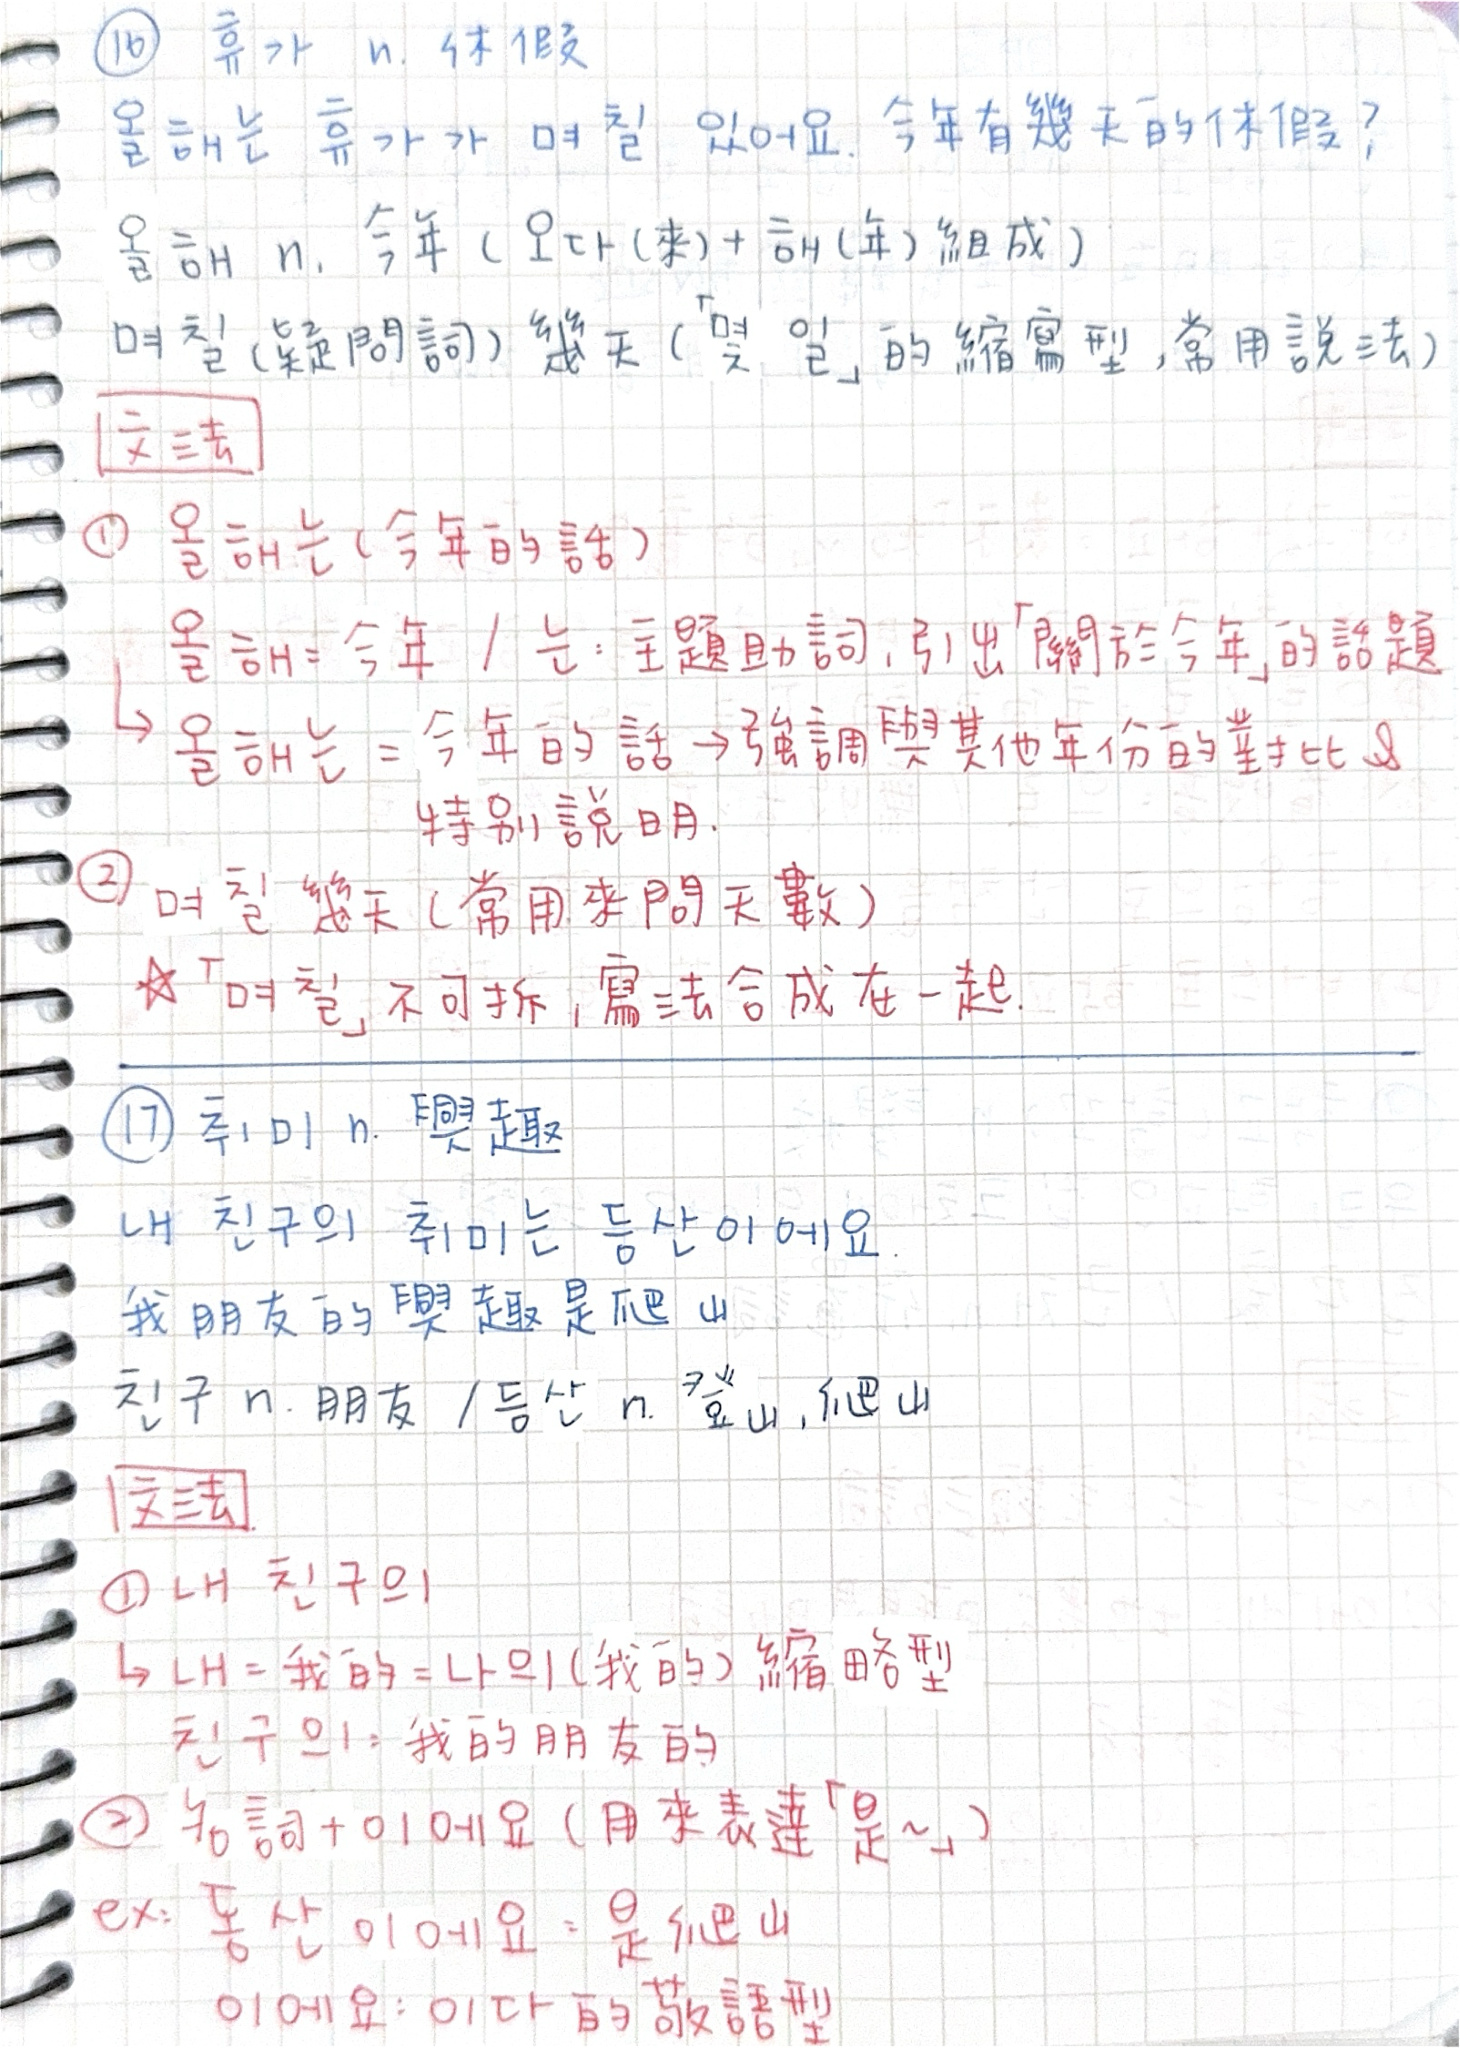 ⑯ 휴가 n. 休假
올해는 휴가가 며칠 있어요. 今年有幾天的休假?
올해 n. 今年 (오다(來)+해(年)組成)
며칠(疑問詞) 幾天 (「몇 일」的縮寫型,常用說法)
文法
① 올해는 (今年的話)
올해=今年 / 는:主題助詞,引出「關於今年」的話題
↳ 올해는 = 今年的話→強調與其他年份的對比&
特別說明.
② 며칠 幾天 (常用來問天數)
☆「며칠」不可拆,寫法合成在一起.
⑰ 취미 n. 興趣
내 친구의 취미는 등산이에요.
我朋友的興趣是爬山
친구 n. 朋友 / 등산 n. 登山,爬山
文法
① 내 친구의
↳ 내=我的=나의(我的)縮略型
친구의:我的朋友的
② 名詞+이에요 (用來表達「是~」)
ex: 동산이에요:是爬山
이에요:이다的敬語型